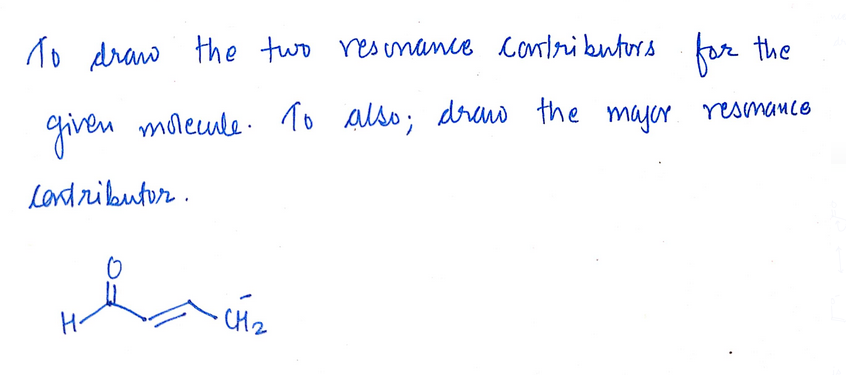 To draw the two resonance contributors for the
given molecule. To also; draw the major resonance
contributor.
O
H
CH2
-